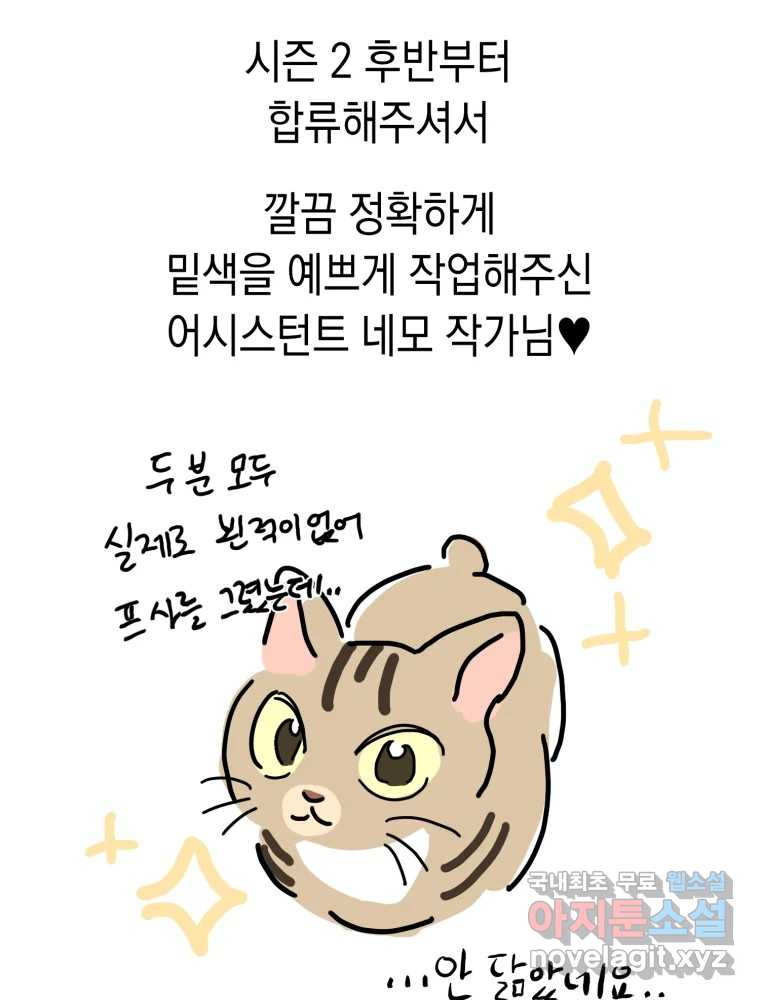 시즌 2 후반부터
합류해주셔서
깔끔 정확하게
밑색을 예쁘게 작업해주신
어시스턴트 네모 작가님♥
두 분 모두
실제로 뵌 적이 없어
프사를 그렸는데..
국내최초 무료 웹소설
아지툰소설
novelagit.xyz
...안 닮았네요..